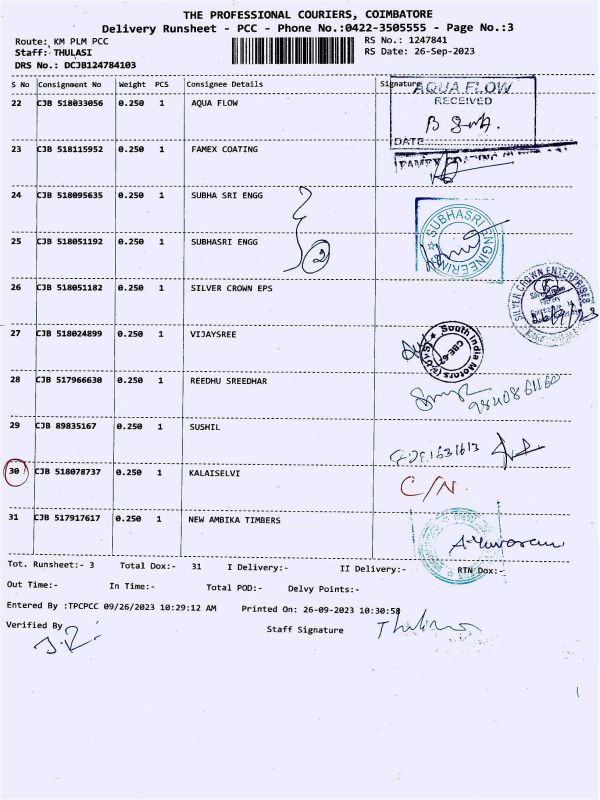 THE PROFESSIONAL COURIERS, COIMBATORE
Delivery Runsheet - PCC - Phone No.:0422-3505555 - Page No.:3
Route: KM PLM PCC RS No.: 1247841
Staff: THULASI RS Date: 26-Sep-2023
DRS No.: DCJB124784103
S No Consignment No Weight PCS Consignee Details Signature
22 CJB 518033056 0.250 1 AQUA FLOW
AQUA FLOW
RECEIVED
DATE
23 CJB 518115952 0.250 1 FAMEX COATING
FAMEX COATING
24 CJB 518095635 0.250 1 SUBHA SRI ENGG
SUBHASRI ENGINEERING
25 CJB 518051192 0.250 1 SUBHASRI ENGG
2
26 CJB 518051182 0.250 1 SILVER CROWN EPS
SILVER CROWN ENTERPRISES
27 CJB 518024899 0.250 1 VIJAYSREE
South India Motors
CBE-
28 CJB 517966630 0.250 1 REEDHU SREEDHAR
29 CJB 89835167 0.250 1 SUSHIL
30 CJB 518078737 0.250 1 KALAISELVI C/N
31 CJB 517917617 0.250 1 NEW AMBIKA TIMBERS
Tot. Runsheet:- 3 Total Dox:- 31 I Delivery:- II Delivery:- RTN Dox:-
Out Time:- In Time:- Total POD:- Delvy Points:-
Entered By :TPCPCC 09/26/2023 10:29:12 AM Printed On: 26-09-2023 10:30:58
Verified By Staff Signature